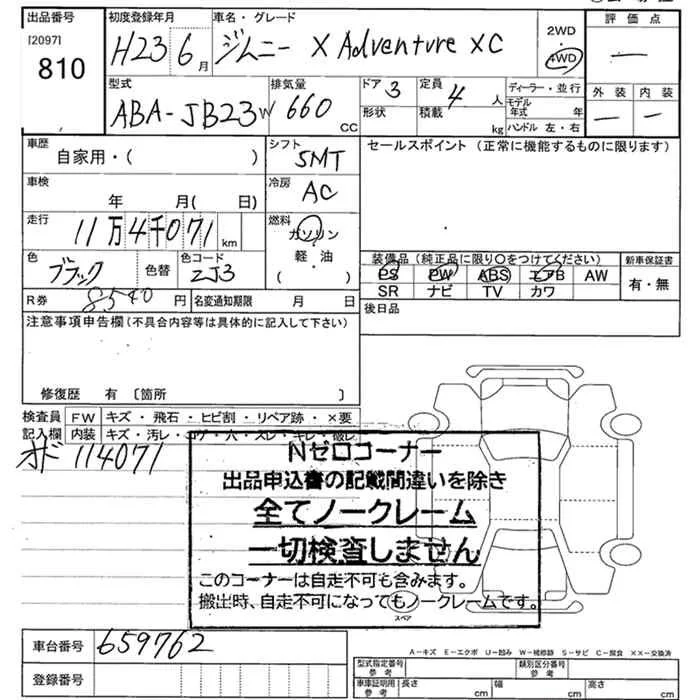 出品番号 初度登録年月 車名・グレード 評価点
[2097] 810 H23 6月 ジムニー X Adventure XC 2WD 4WD —
型式 排気量 ドア 3 定員 4人 ディーラー・並行 外装 内装
ABA-JB23W 660cc 形状 積載 kg モデル年式 年 ハンドル 左・右 — —
車歴 自家用・( ) シフト 5MT セールスポイント(正常に機能するものに限ります)
車検 年 月( 日) 冷房 AC
走行 11万4千071km 燃料 ガソリン 軽・油 ( )
色 ブラック 色替 色コード ZJ3 装備品(純正品に限り〇をつけてください) 新車保証書
PS PW ABS エアB AW 有・無
SR ナビ TV カワ
R券 8540円 名変通知期限 月 日 後日品
注意事項申告欄(不具合内容等は具体的に記入して下さい)
修復歴 有〔箇所 〕
検査員 FW キズ・飛石・ヒビ割・リペア跡・×要
記入欄 内装 キズ・汚レ・コゲ・穴・スレ・キレ・破レ
オド 114071
Nゼロコーナー
出品申込書の記載間違いを除き
全てノークレーム
一切検査しません
このコーナーは自走不可も含みます。
搬出時、自走不可になってもノークレームです。
スペア
A-キズ E-エクボ U-凹み W-補修跡 S-サビ C-腐食 XX-交換済
車台番号 659762 型式指定番号 参考 類別区分番号 参考
登録番号 車庫証明用 参考 長さ cm 幅 cm 高さ cm